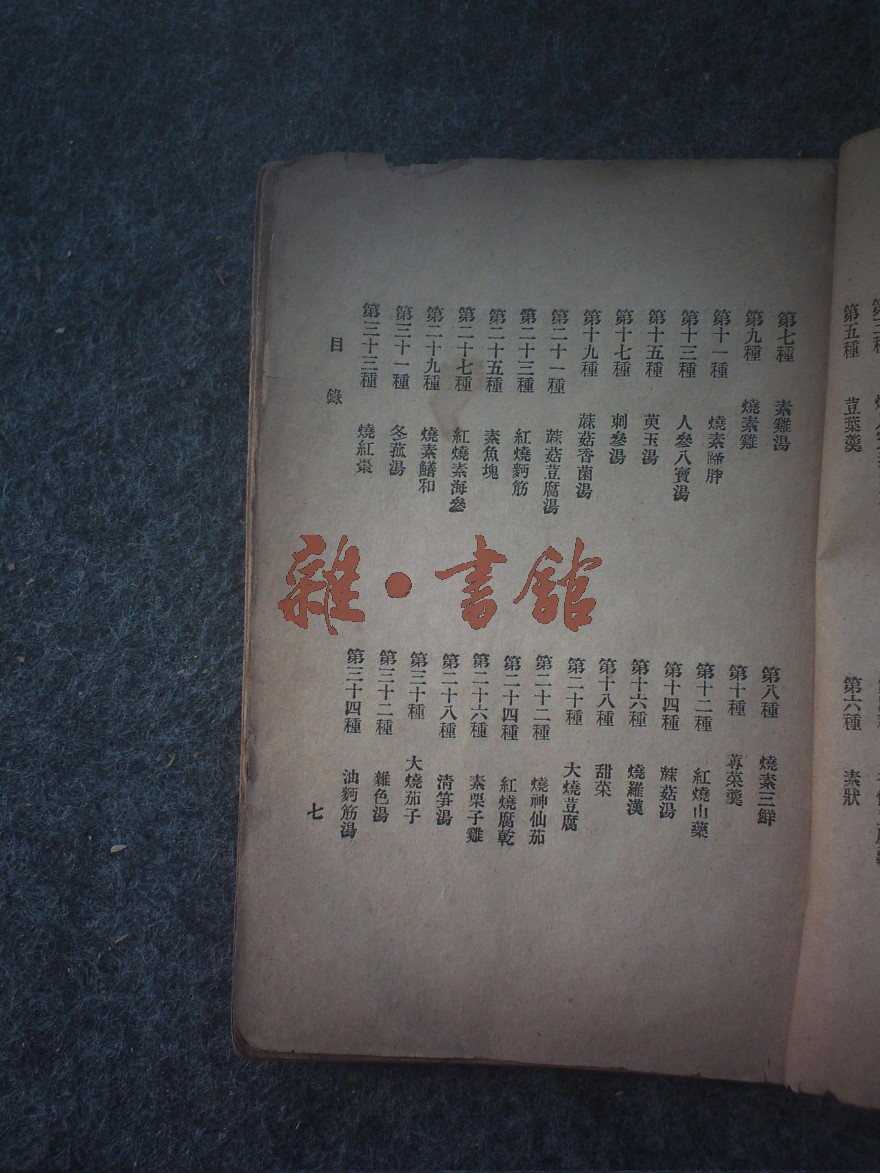 第五種　荳葉羹
第六種　素狀
第七種　素雞湯
第八種　燒素三鮮
第九種　燒素雞
第十種　蓴菜羹
第十一種　燒素蹄胖
第十二種　紅燒山藥
第十三種　人參八寶湯
第十四種　蔴菇湯
第十五種　萸玉湯
第十六種　燒羅漢
第十七種　刺參湯
第十八種　甜菜
第十九種　蔴菇香菌湯
第二十種　大燒荳腐
第二十一種　蔴菇荳腐湯
第二十二種　燒神仙茄
第二十三種　紅燒麪筋
第二十四種　紅燒腐乾
第二十五種　素魚塊
第二十六種　素栗子雞
第二十七種　紅燒素海參
第二十八種　清笋湯
第二十九種　燒素鱔和
第三十種　大燒茄子
第三十一種　冬菰湯
第三十二種　雜色湯
第三十三種　燒紅棗
第三十四種　油麪筋湯
目錄
七
雜·書館